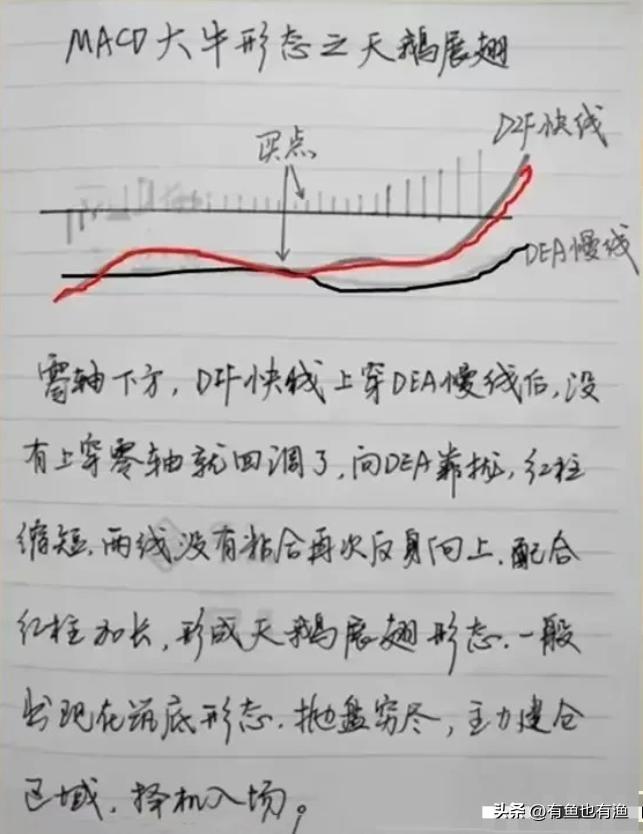 MACD大牛形态之天鹅展翅
买点
DIF快线
DEA慢线
零轴下方，DIF快线上穿DEA慢线后，没
有上穿零轴就回调了，向DEA靠拢，红柱
缩短，两线没有粘合再次反身向上，配合
红柱加长，形成天鹅展翅形态，一般
出现在筑底形态，抛盘穷尽，主力建仓
区域，择机入场。
头条 @有鱼也有渔